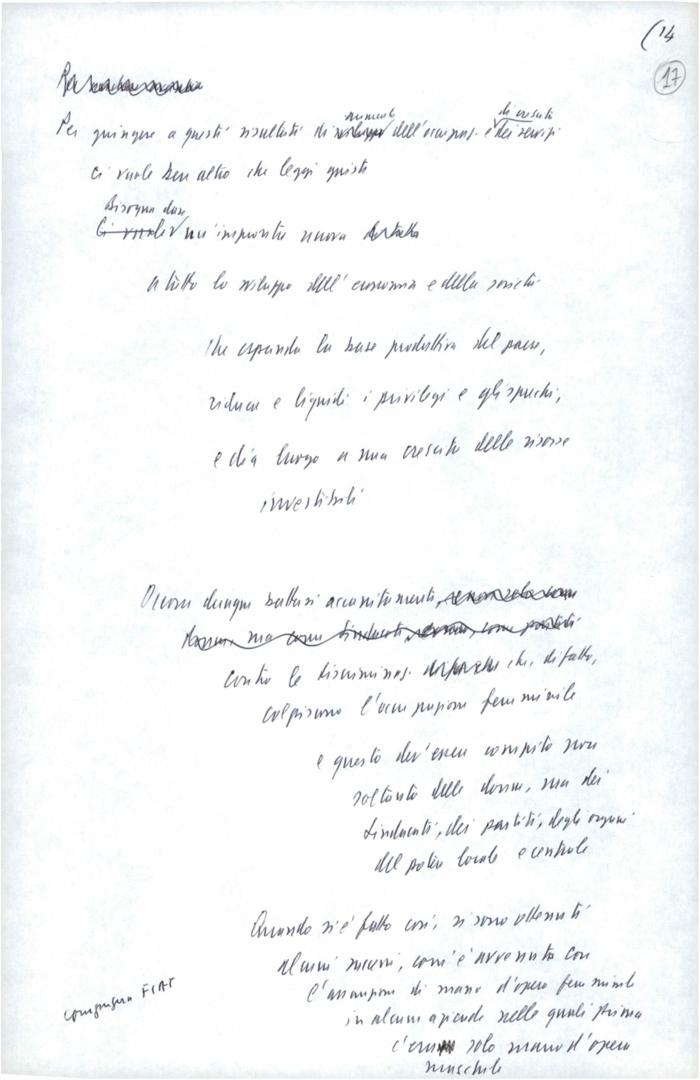 (14
17
aumento di crescita
Per giungere a questi risultati di sviluppo dell'occupaz. e dei servizi
ci vuole ben altro che leggi giuste
Bisogna dare
Ci vuole un'impronta nuova
a tutto lo sviluppo dell'economia e della società
che espanda la base produttiva del paese,
riduca e liquidi i privilegi e gli sprechi,
e dia luogo a una crescita delle risorse
investibili
Occorre dunque battersi accanitamente,
ma come sindacati, come partiti
contro le discriminaz. che, di fatto,
colpiscono l'occupazione femminile
e questo dev'essere compito non
soltanto delle donne, ma dei
sindacati, dei partiti, degli organi
del potere locale e centrale
Quando si è fatto così, si sono ottenuti
alcuni successi, com'è avvenuto con
l'assunzione di mano d'opera femminile
compagna FIAT
in alcune aziende nelle quali prima
c'era solo mano d'opera
maschile